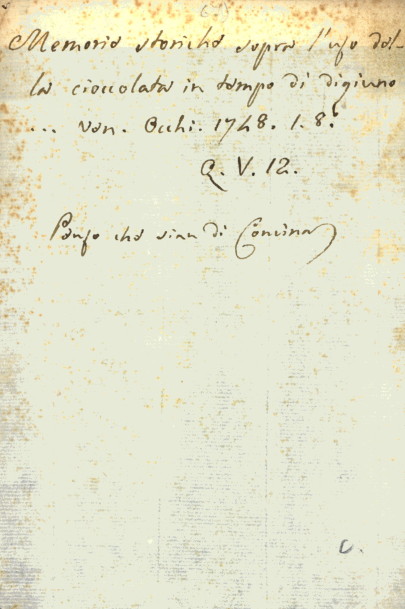 Memorie storiche sopra l'uso del-
la cioccolata in tempo di digiuno
... Ven. Occhi. 1748. 1. 8.°
Q. V. 12.
Penso che sian di Concina